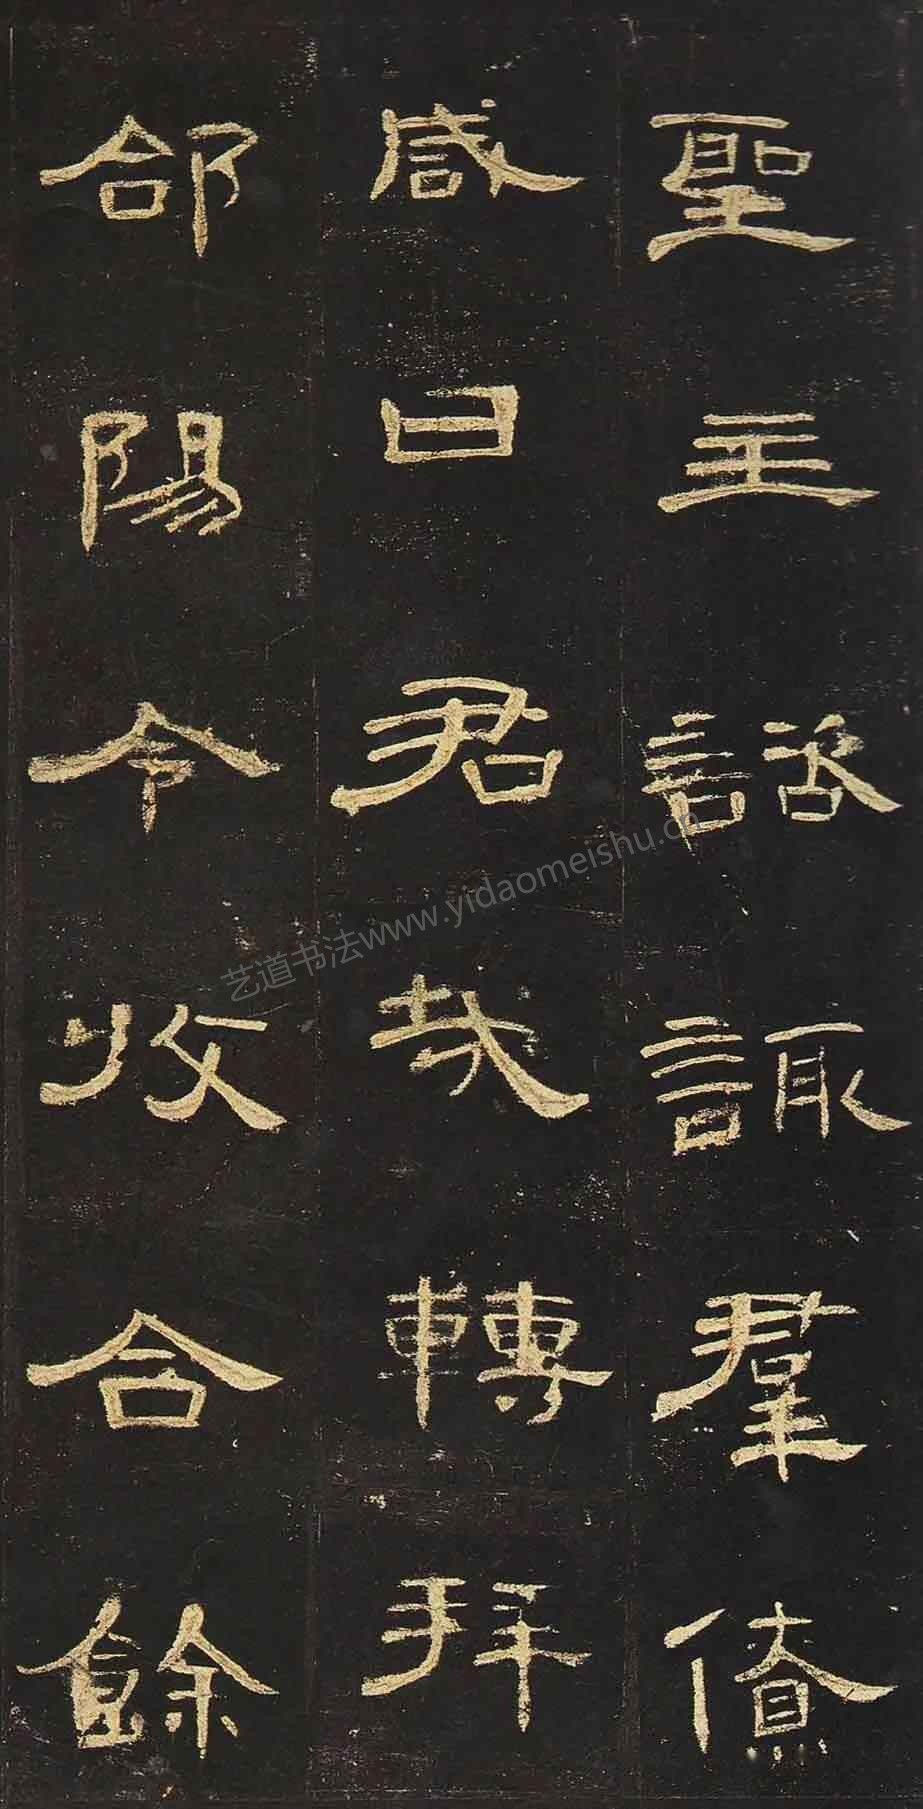 聖主諮諏羣僚
咸曰君哉轉拜
郃陽令收合餘
艺道书法www.yidaomeishu.cn